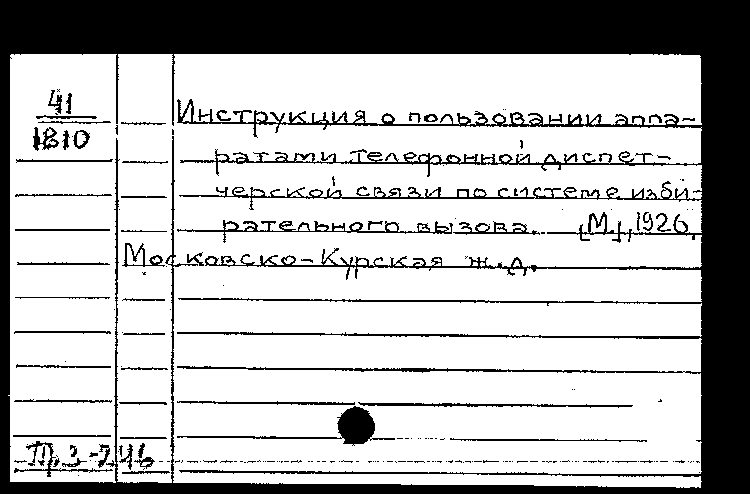 41
1810
Инструкция о пользовании аппа-
ратами телефонной диспет-
черской связи по системе изби-
рательного вызова. [М.], 1926.
Московско-Курская ж.д.
Пр. 3-746